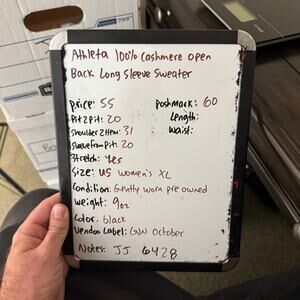 Athleta 100% Cashmere open
Back Long Sleeve Sweater
price: 55 poshmark: 60
Pit2Pit: 20 Length:
Shoulder2Hem: 31 waist:
SleeveFromPit: 20
Stretch: Yes
Size: US Women's XL
Condition: Gently worn pre owned
weight: 9oz
Color: black
Vendoo Label: GW October
Notes: JJ 6428